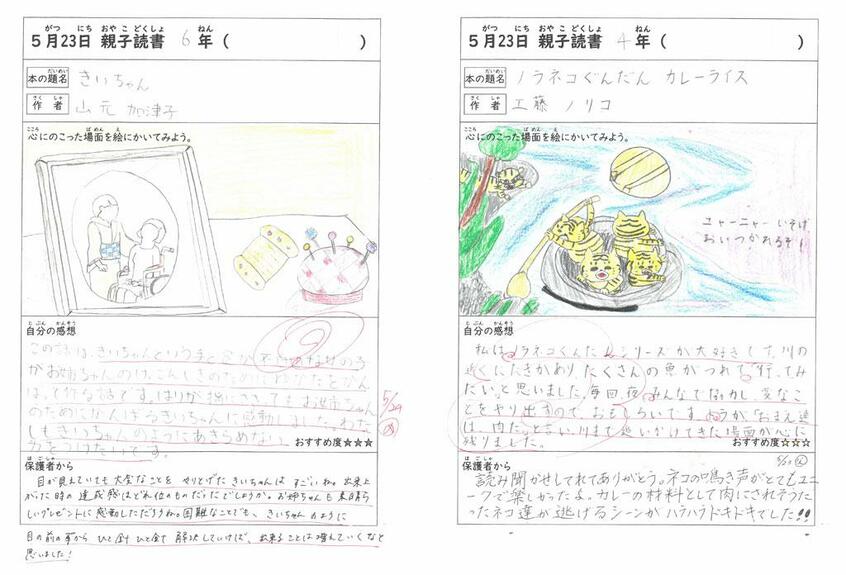 5月23日 親子読書 6年( )
本の題名 きいちゃん
作者 山元 加津子
心にのこった場面を絵にかいてみよう。
自分の感想
この話は、きいちゃんという手と足が不自由な女の子
がお姉ちゃんのけっこんしきのためにゆかたを
作る話です。はりが指にささってもお姉ちゃん
のためにがんばるきいちゃんに感動しました。わた
しもきいちゃんのようにあきらめない
力をつけたいです。
おすすめ度☆☆☆
5/29
保護者から
目が見えていても大変なことを やりとげた きいちゃんは すごいね。出来上
がった時の達成感はどれ位のものだったでしょうか。お姉ちゃんも素晴ら
しいプレゼントに感動しただろうね。困難なことでも、きいちゃんのように
目の前の事から ひと針 ひと針 解決していけば、出来ることは増えていくなと
思いました!
5月23日 親子読書 4年( )
本の題名 ノラネコぐんだん カレーライス
作者 工藤 ノリコ
心にのこった場面を絵にかいてみよう。
ニャーニャー いそげ
おいつかれるぞ!
自分の感想
私は、ノラネコぐんだんシリーズが大好きです。川の
近くにたきがあり、たくさんの魚がつれて、行ってみ
たいと思いました。毎回、夜みんなで協力し、変なこ
とをやり出すので、おもしろいです。とらが「おまえ達
は、肉だ」と言い、川まで追いかけてきた場面が心に
残りました。
おすすめ度☆☆☆
保護者から
読み聞かせしてくれてありがとう。ネコの鳴き声がとてもユニ
ークで楽しかったよ。カレーの材料として肉にされそうだ
ったネコ達が逃げるシーンがハラハラドキドキでした!!